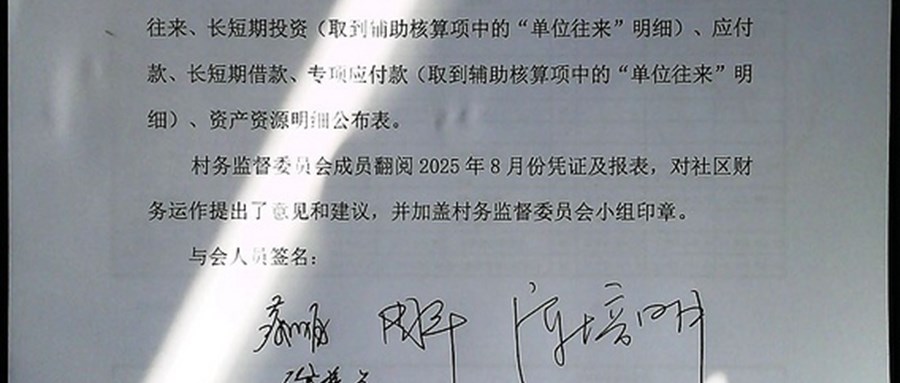 往来、长短期投资（取到辅助核算项中的“单位往来”明细）、应付
款、长短期借款、专项应付款（取到辅助核算项中的“单位往来”明
细）、资产资源明细公布表。
村务监督委员会成员翻阅 2025 年 8 月份凭证及报表，对社区财
务运作提出了意见和建议，并加盖村务监督委员会小组印章。
与会人员签名：